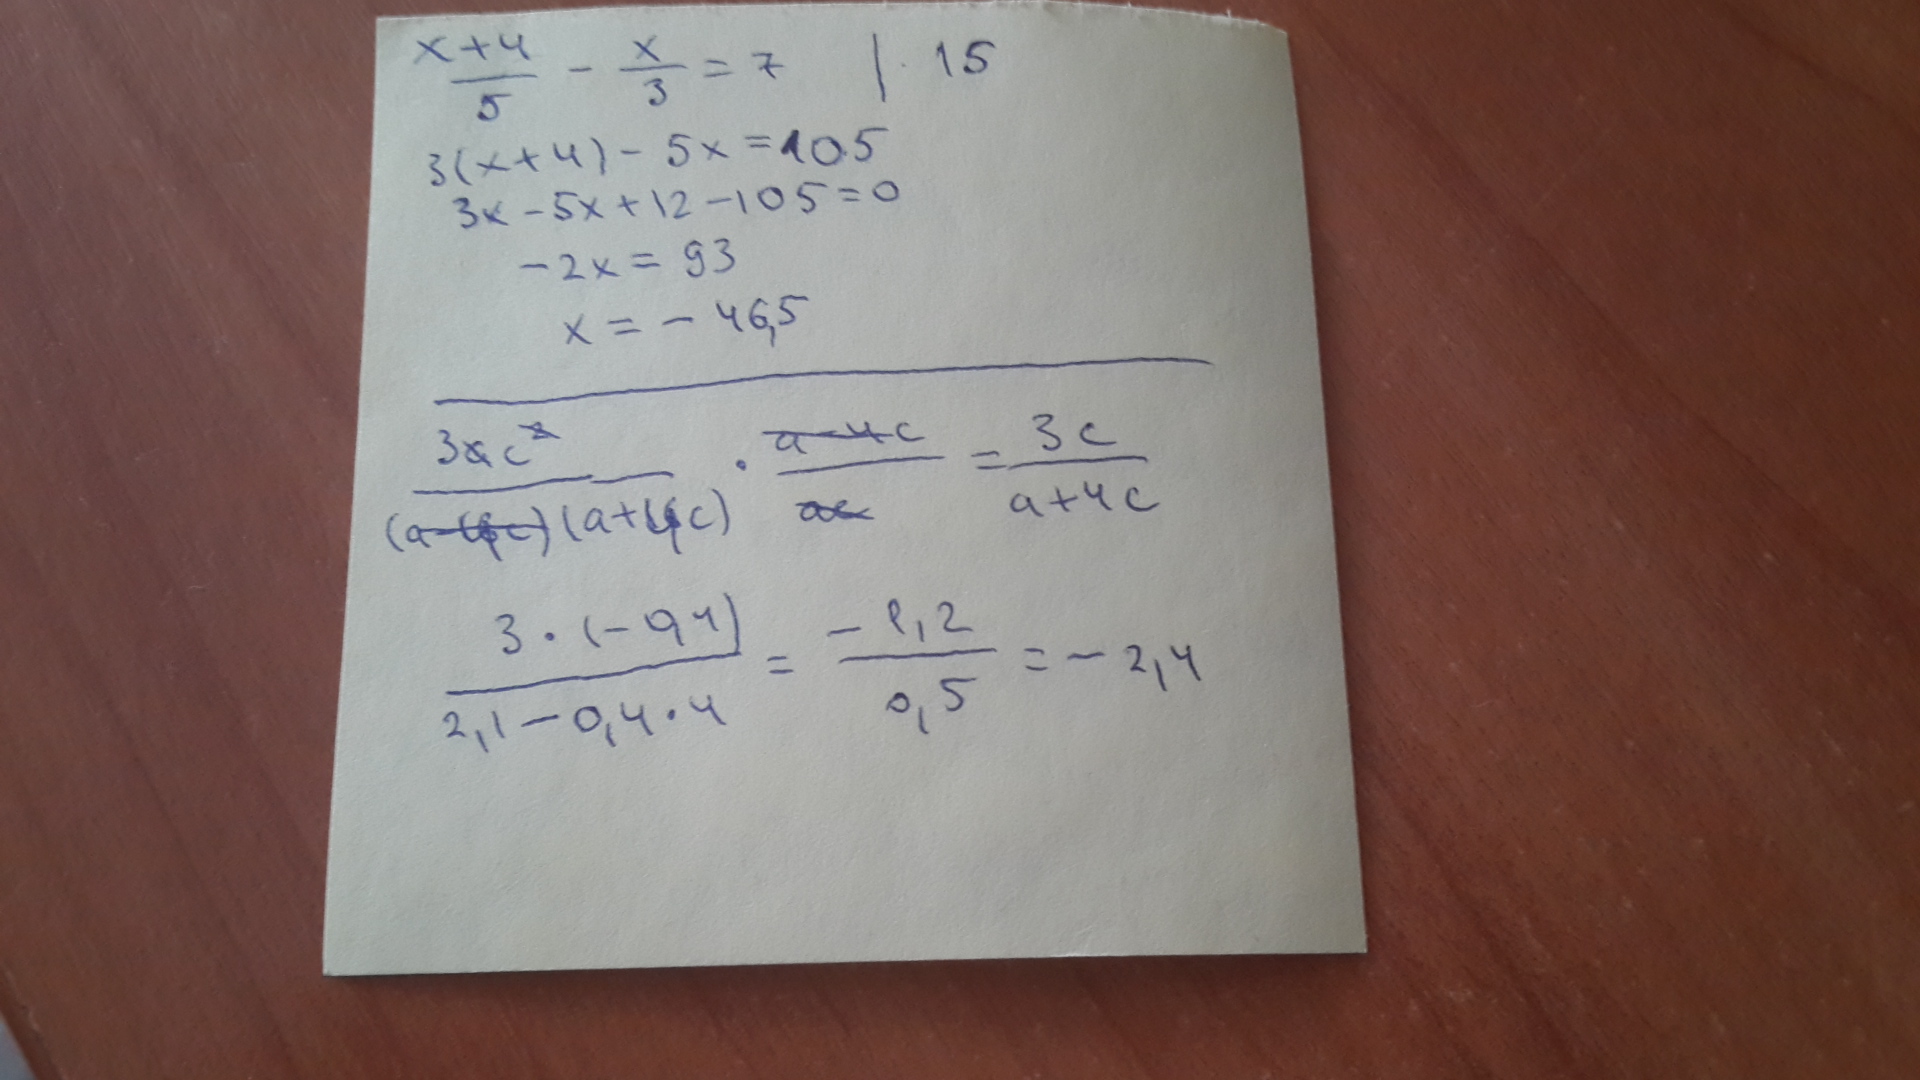 (x+4)/5 - x/3 = 7 | · 15
3(x+4) - 5x = 105
3x - 5x + 12 - 105 = 0
-2x = 93
x = - 46,5
3ac²/((a-4c)(a+4c)) · (a-4c)/(ac) = 3c/(a+4c)
(3 · (-0,4))/(2,1 - 0,4 · 4) = (-1,2)/(0,5) = -2,4